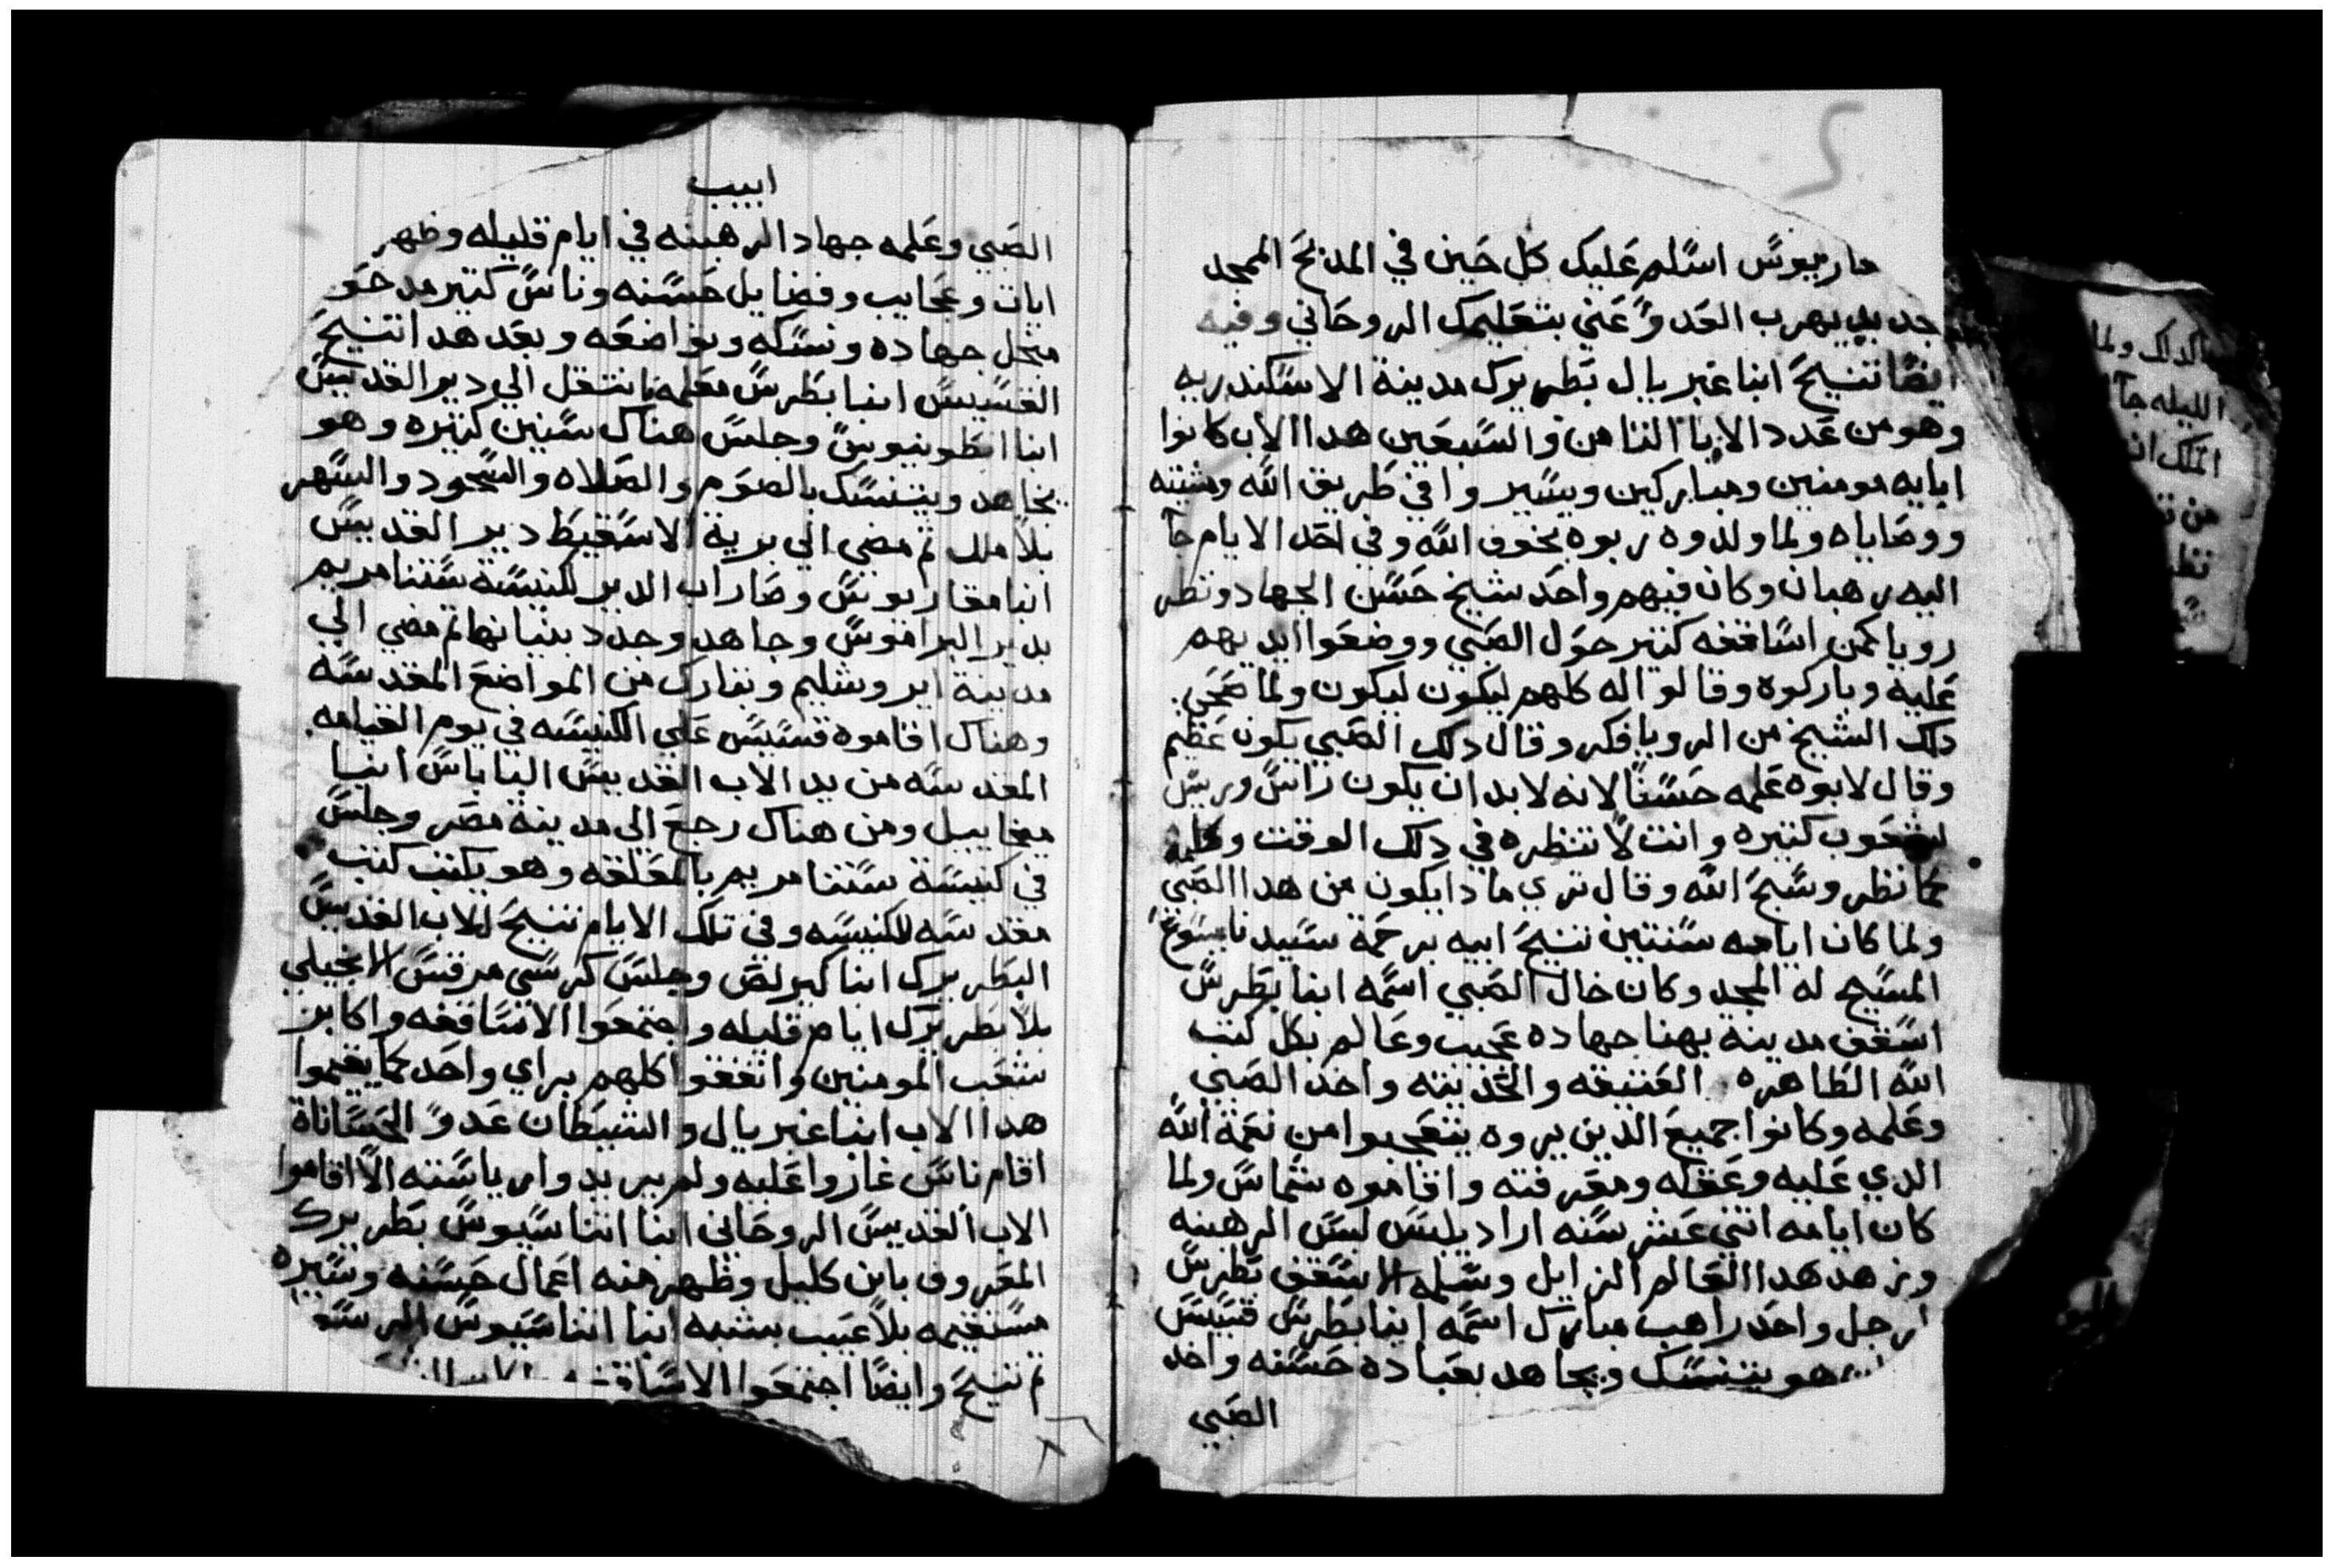 ماريوس اسلم عليك كل حين في المدبح الممجد
جد بيد يهرب العدو عني بتعليمك الروحاني وفيه
ايضا تنيح انبا غبريال بطريرك مدينة الاسكندريه
وهو من عدد الابا التامن والسبعين هدا الاب كانوا
ابايه مومنين ومباركين ويسيروا في طريق الله ومشيته
ووصاياه ولما ولدوه ربوه بخوف الله وفي احد الايام جا
اليه رهبان وكان فيهم واحد شيخ حسن الجهاد ونظر
رويا كمن اساقفه كتير حول الصبي ووضعوا ايديهم
عليه وباركوه وقالوا له كلهم ليكون ليكون ولما صحي
دلك الشيخ من الرويا فكر وقال دلك الصبي يكون عظيم
وقال لابوه علمه حسنا لانه لابد ان يكون راس وريس
لشعوب كتيره وانت لا تنظره في دلك الوقت
كما نظر وسبح الله وقال تري مادا يكون من هدا الصبي
ولما كان ايامه سنتين تنيح ابيه برحمة سيدنا يسوع
المسيح له المجد وكان خال الصبي اسمه انبا بطرس
اسقف مدينة بهنا جهاده عجيب وعالم بكل كتب
الله الطاهره العتيقه والحديته واخد الصبي
وعلمه وكانوا جميع الدين يروه يتعجبوا من نعمة الله
الدي عليه وعقله ومعرفته واقاموه شماس ولما
كان ايامه اتني عشر سنه اراد يلبس لبس الرهبنه
وزهد هدا العالم الزايل وسلمه الاسقف بطرس
لرجل واحد راهب مبارك اسمه انبا بطرس قسيس
هو يتنسك ويجاهد بعباده حسنه واخد
الصبي
ابيب
الصبي وعلمه جهاد الرهبنه في ايام قليله وظهر
ايات وعجايب وفضايل حسنه وناس كتير مدحو
متل جهاده ونسكه وتواضعه وبعد هدا تنيح
القسيس انبا بطرس معلمه انتقل الي دير القديس
انبا انطونيوس وجلس هناك سنين كتيره وهو
يجاهد ويتنسك بالصوم والصلاه والسجود والسهر
بلا ملل تم مضي الي برية الاسقيط دير القديس
انبا مقاريوس وصار اب الدير لكنيسة ستنا مريم
بدير البراموس وجاهد وجدد بنيانها تم مضي الي
مدينة ايروشليم وتبارك من المواضع المقدسه
وهناك اقاموه قسيس علي الكنيسه في يوم القيامه
المقدسه من يد الاب القديس الباباس انبا
ميخاييل ومن هناك رجع الي مدينة مصر وجلس
في كنيسة ستنا مريم بالمعلقه وهو يكتب كتب
مقدسه للكنيسه وفي تلك الايام تنيح الاب القديس
البطريرك انبا كيرلص وجلس كرسي مرقس الانجيلي
بلا بطريرك ايام قليله واجتمعوا الاساقفه واكابر
شعب المومنين واتفقوا كلهم براي واحد كما يقيموا
هدا الاب انبا غبريال والشيطان عدو الحسنات
اقام ناس غاروا عليه ولم يريدوا رياسته الا اقاموا
الاب القديس الروحاني انبا اتناسيوس بطريرك
المعروف بابن كليل وظهر منه اعمال حسنه وسيره
مستقيمه بلا عيب بشبه انبا اتناسيوس الرسو
تم تنيح وايضا اجتمعوا الاساقفه